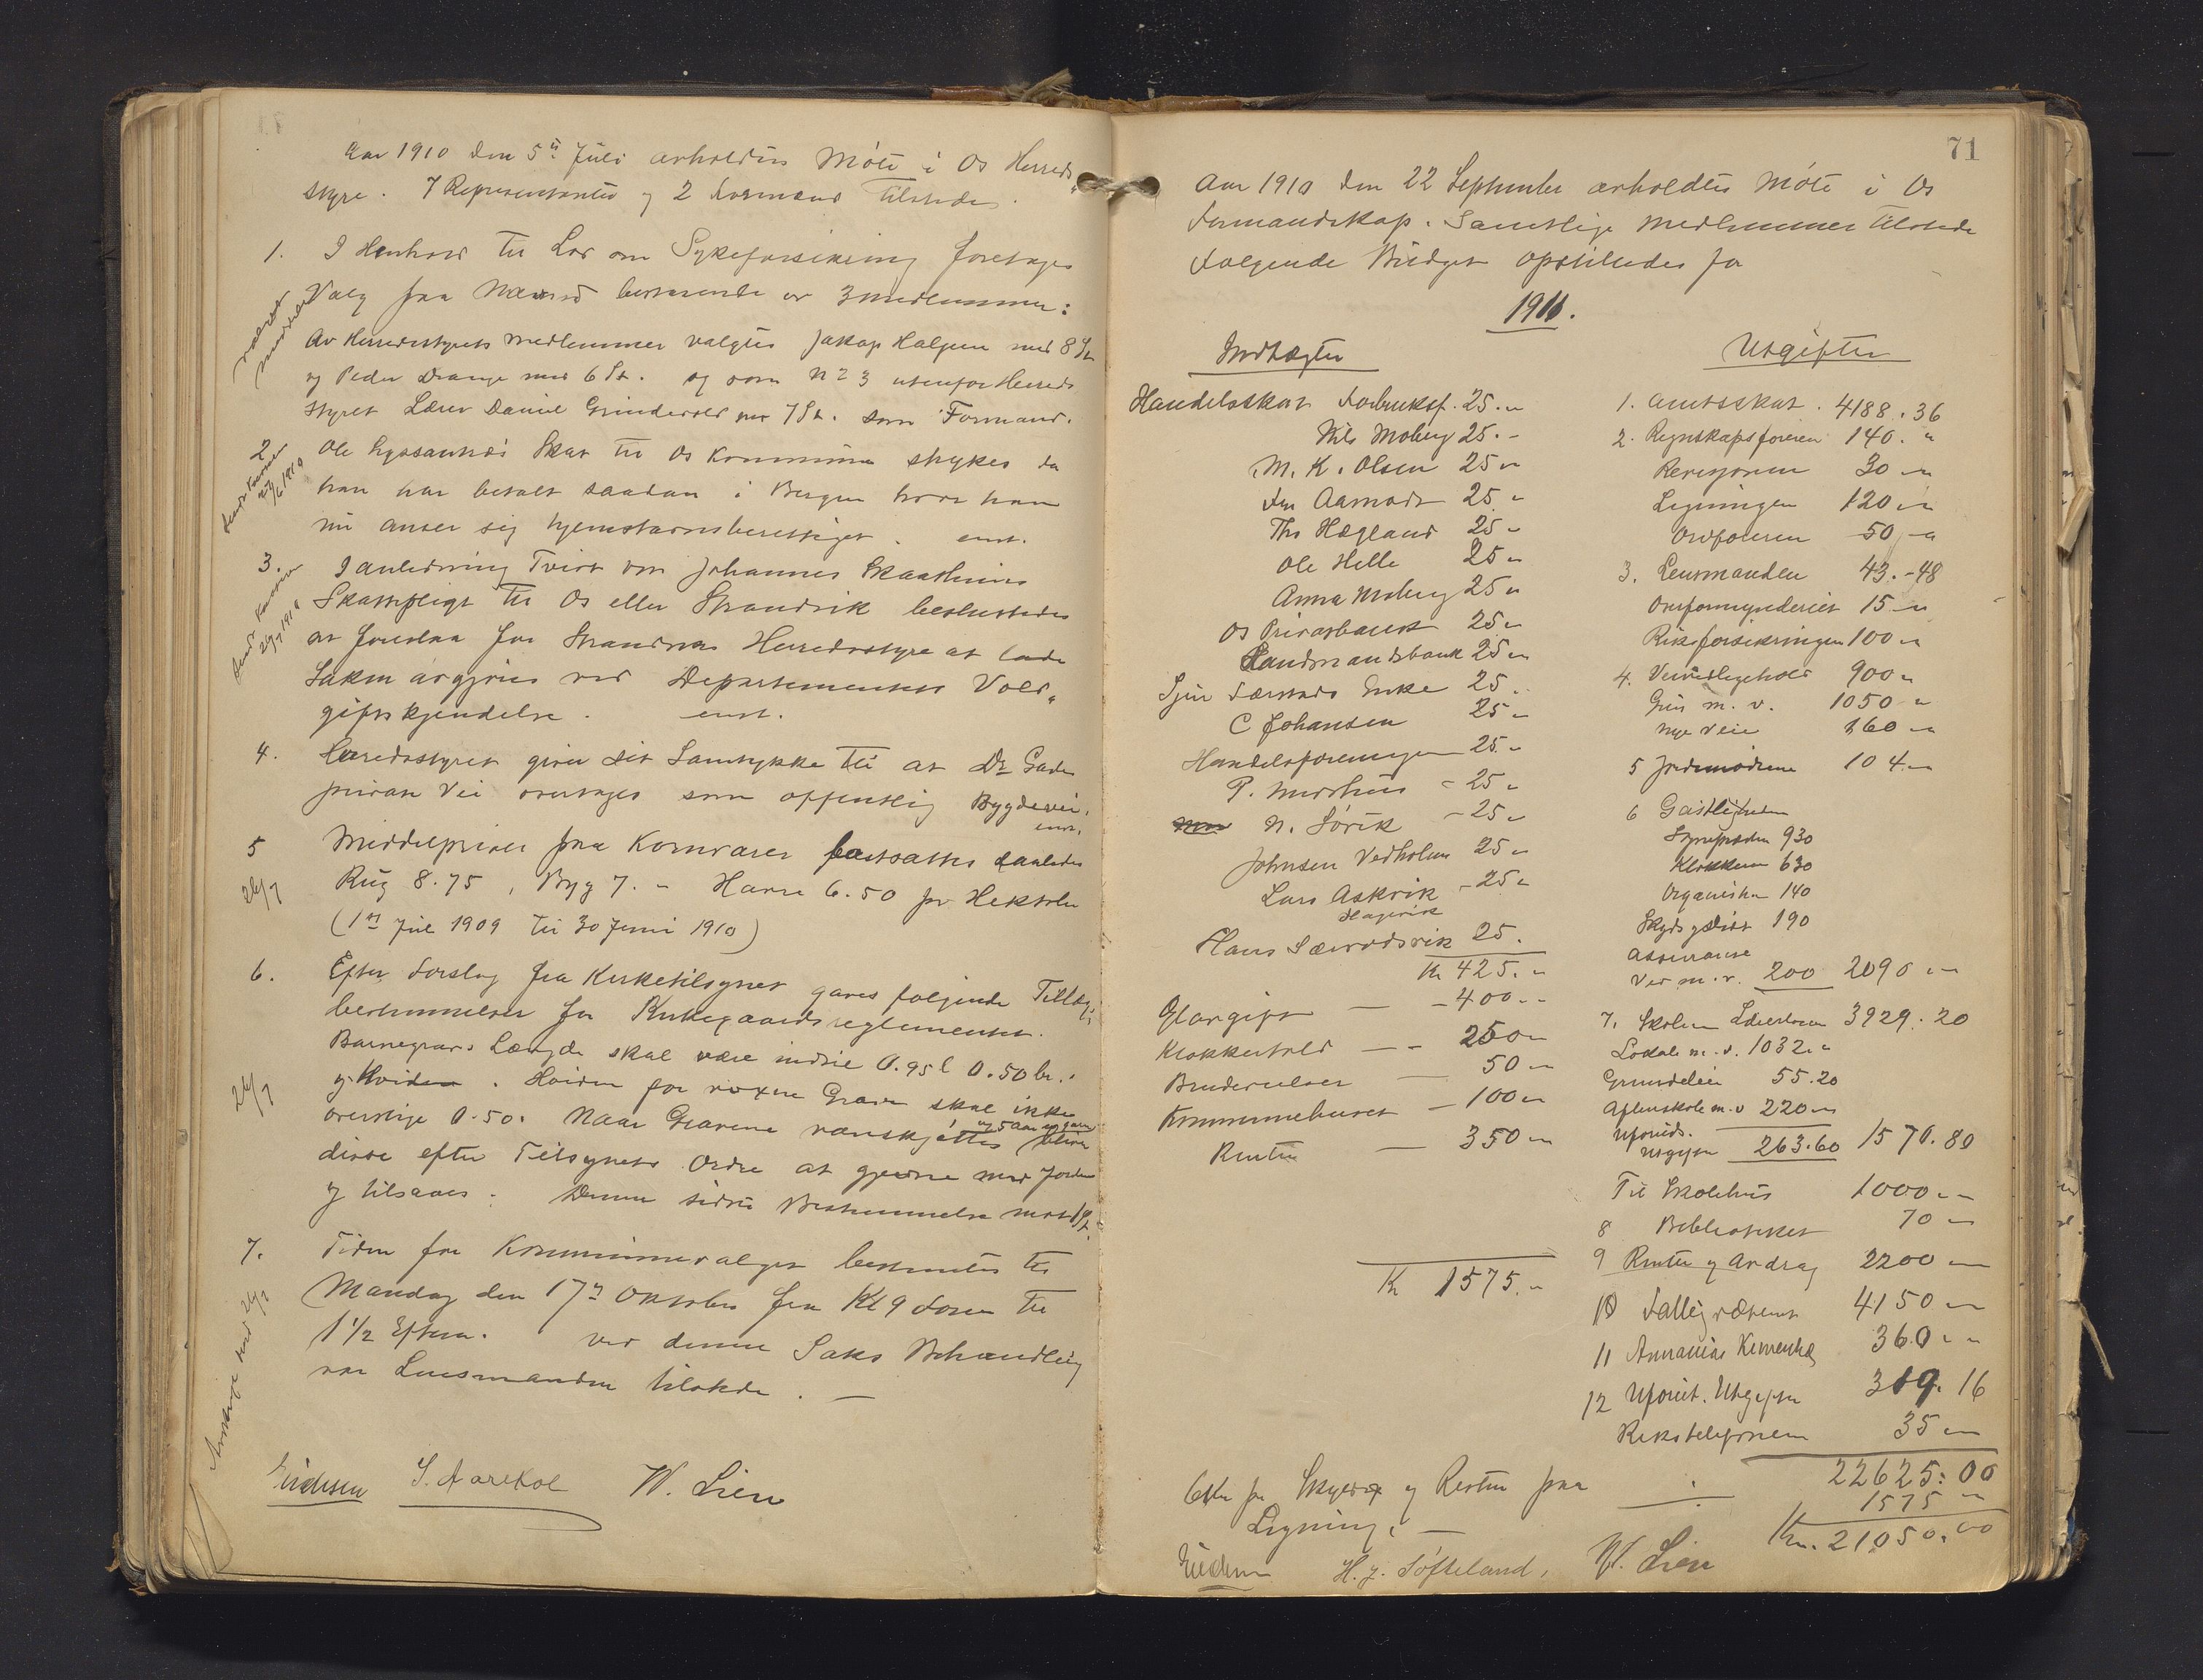 Aar 1910 den 5te Juli avholdtes Møte i Os Herreds
styre. 7 Representanter og 2 Formænd tilstede.
1. I Henhold til Lov om Sykeforsikring foretages
Valg paa Nævnd bestaaende av 3 medlemmer:
Av Herredsstyrets medlemmer valgtes Jakop Halgren med 8 St
og Peder Drange med 6 St. og som No 3 utenfor Herreds
styret Lærer Daniel Grindevold med 7 St. som Formand.
2 Ole Lyssands Skat til Os Kommune strykes da
han har betalt saadan i Bergen hvor han
nu anser sig hjemstavnsberettiget. enst.
3. I anledning Tvist om Johannes
Skattepligt til Os eller Strandvik besluttedes
at foreslaa for Strandvik Herredsstyre at lade
Saken avgjøres ved Departementets Vold"
giftskjendelse. enst.
4. Herredsstyret giver sit Samtykke til at Dr Gades
private Vei overtages som offentlig Bygdevei.
enst.
5 Middelpriser paa Kornvarer fastsattes saaledes
26/7 Rug 8.75, Byg 7.- Havre 6.50 pr Hektoliter
(1ste Juli 1909 til 30 Juni 1910)
6. Efter Forslag fra Kirketilsynet gaves følgende Tillægs
bestemmelser for Kirkegaardsreglementet.
Barnegravs Længde skal være indtil 0.95 l 0.50 br.
26/7 og Høiden. Høiden for voxne Grave skal ikke
overstige 0.50. Naar Gravene vanskjøttes bliver
disse efter Tilsynets Ordre at gjevne med Jorden
og tilsaaes. Denne sidste Bestemmelse mot 1 St.
7. Tiden for Kommunevalget bestemtes til
Mandag den 17de Oktober fra Kl 9 Form til
1 1/2 Efterm. Ved denne Saks Behandling
var Lensmanden tilstede. —
S. Aarekol W. Lien
71
Aar 1910 den 22 September avholdtes Møte i Os
Formandskap. Samtlige Medlemmer tilstede
Følgende Budget opstilledes for
1911.
Indtægter
Handelsskat Forbruksf. 25.-
Nils Moberg 25.-
M. K. Olsen 25 -
Aamodt 25.-
Ths Hægland 25 -
Ole Helle 25 -
Anna Moberg 25 -
Os Privatbank 25 -
Landmandsbank 25 -
Enke 25.
C Johansen 25 -
Handelsforeningen 25.-
P. - 25 -
N. Sørik - 25 -
Johnsen Vedholmen 25 -
Lars Askvik - 25 -
Hagevik
Hans Sævrødsvik 25.
Kr 425.-
— - 400 - -
Klokkertold — - 250 -
— 50 -
Kommunehuset - 100 -
Renter — 350 -
Kr 1575.-
Utgifter
1. Amtsskat. 4188.36
2. Regnskapsføreren 140. "
Revisjonen 30 -
Ligningen 120 -
Ordføreren 50 -
3. Lensmanden 43.-48
Overformynderiet 15 -
Riksforsikringen 100 -
4. Veivedlikehold 900 -
Grus m. v. 1050 -
nye Veie 160 -
5 Jordmødrene 104.-
6 Gaistligheten
Sogneprsten 930
Klokkeren 630
Organisten 140
Skyds og Diæt 190
Assuranse
Ved m. v. 200 2090 -
7. Skolen Lærerløn 3929.20
Lokale m. v. 1032.-
Grundleie 55.20
Aftenskole m. v 220 -
Uforuds.
Utgifter 263.60 1570.80
Til Skolehus 1000.-
8 Biblioteket 70 -
9 Renter og Avdrag 2200 -
10 Fattigvæsenet 4150 -
11 360 - -
12 Uforut. Utgifter 319.16
Rikstelefonen 35 -
22625:00
1575 -
Kr. 21050.00
Efter pr Skyld og Resten paa
Ligning. —
H. J. Søfteland, W. Lien